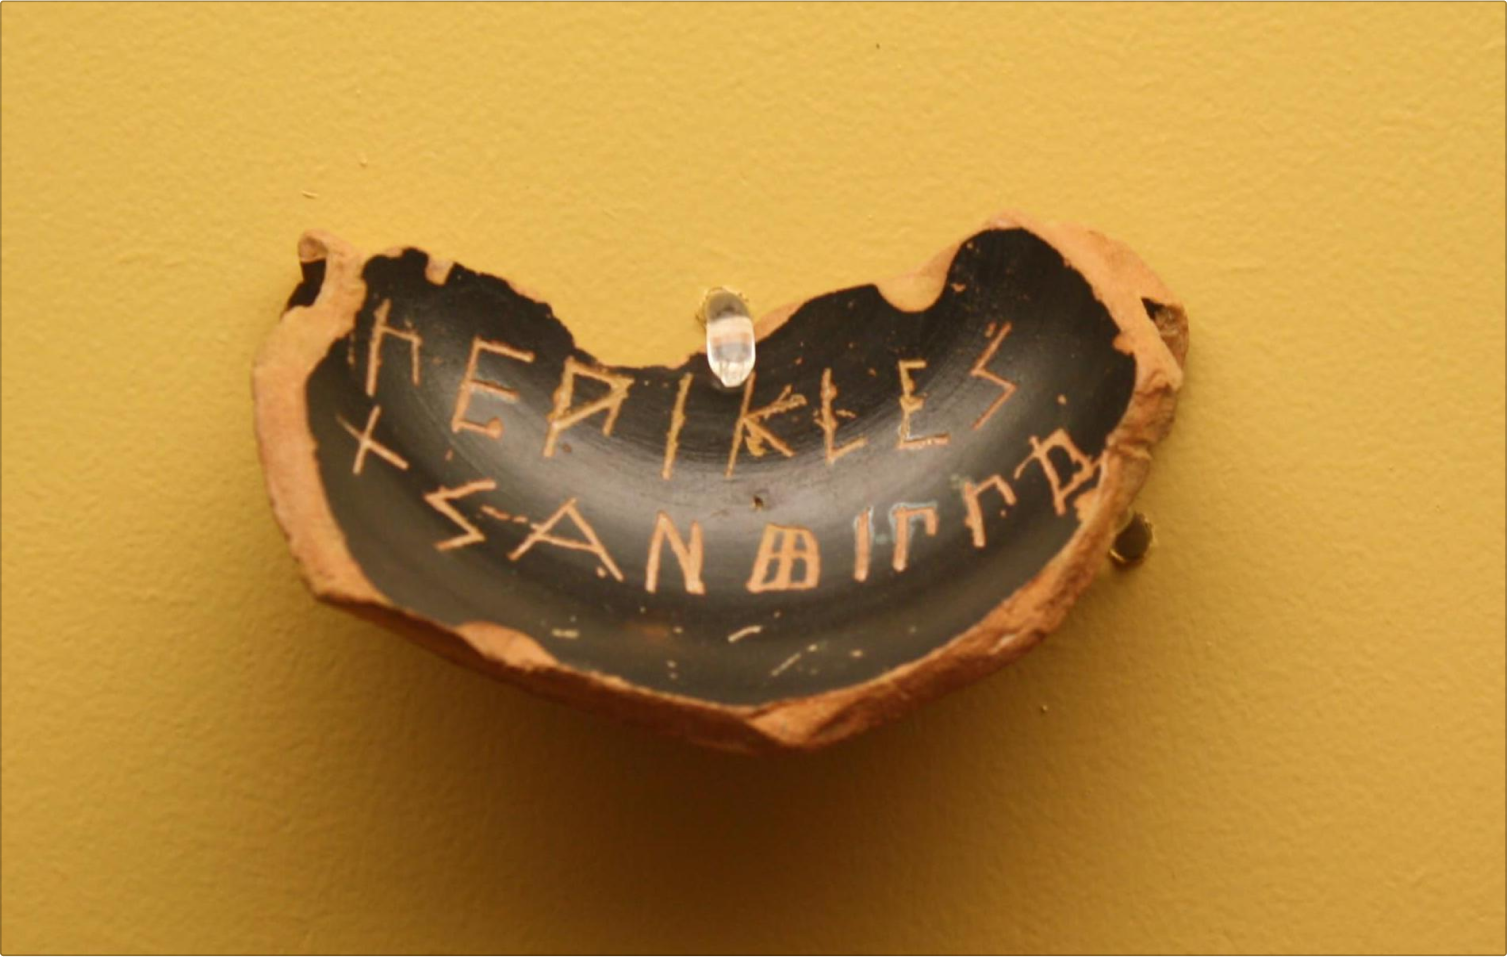 ΠΕΡΙΚΛΕΣ
ΧΣΑΝΘΙΠΠΟ